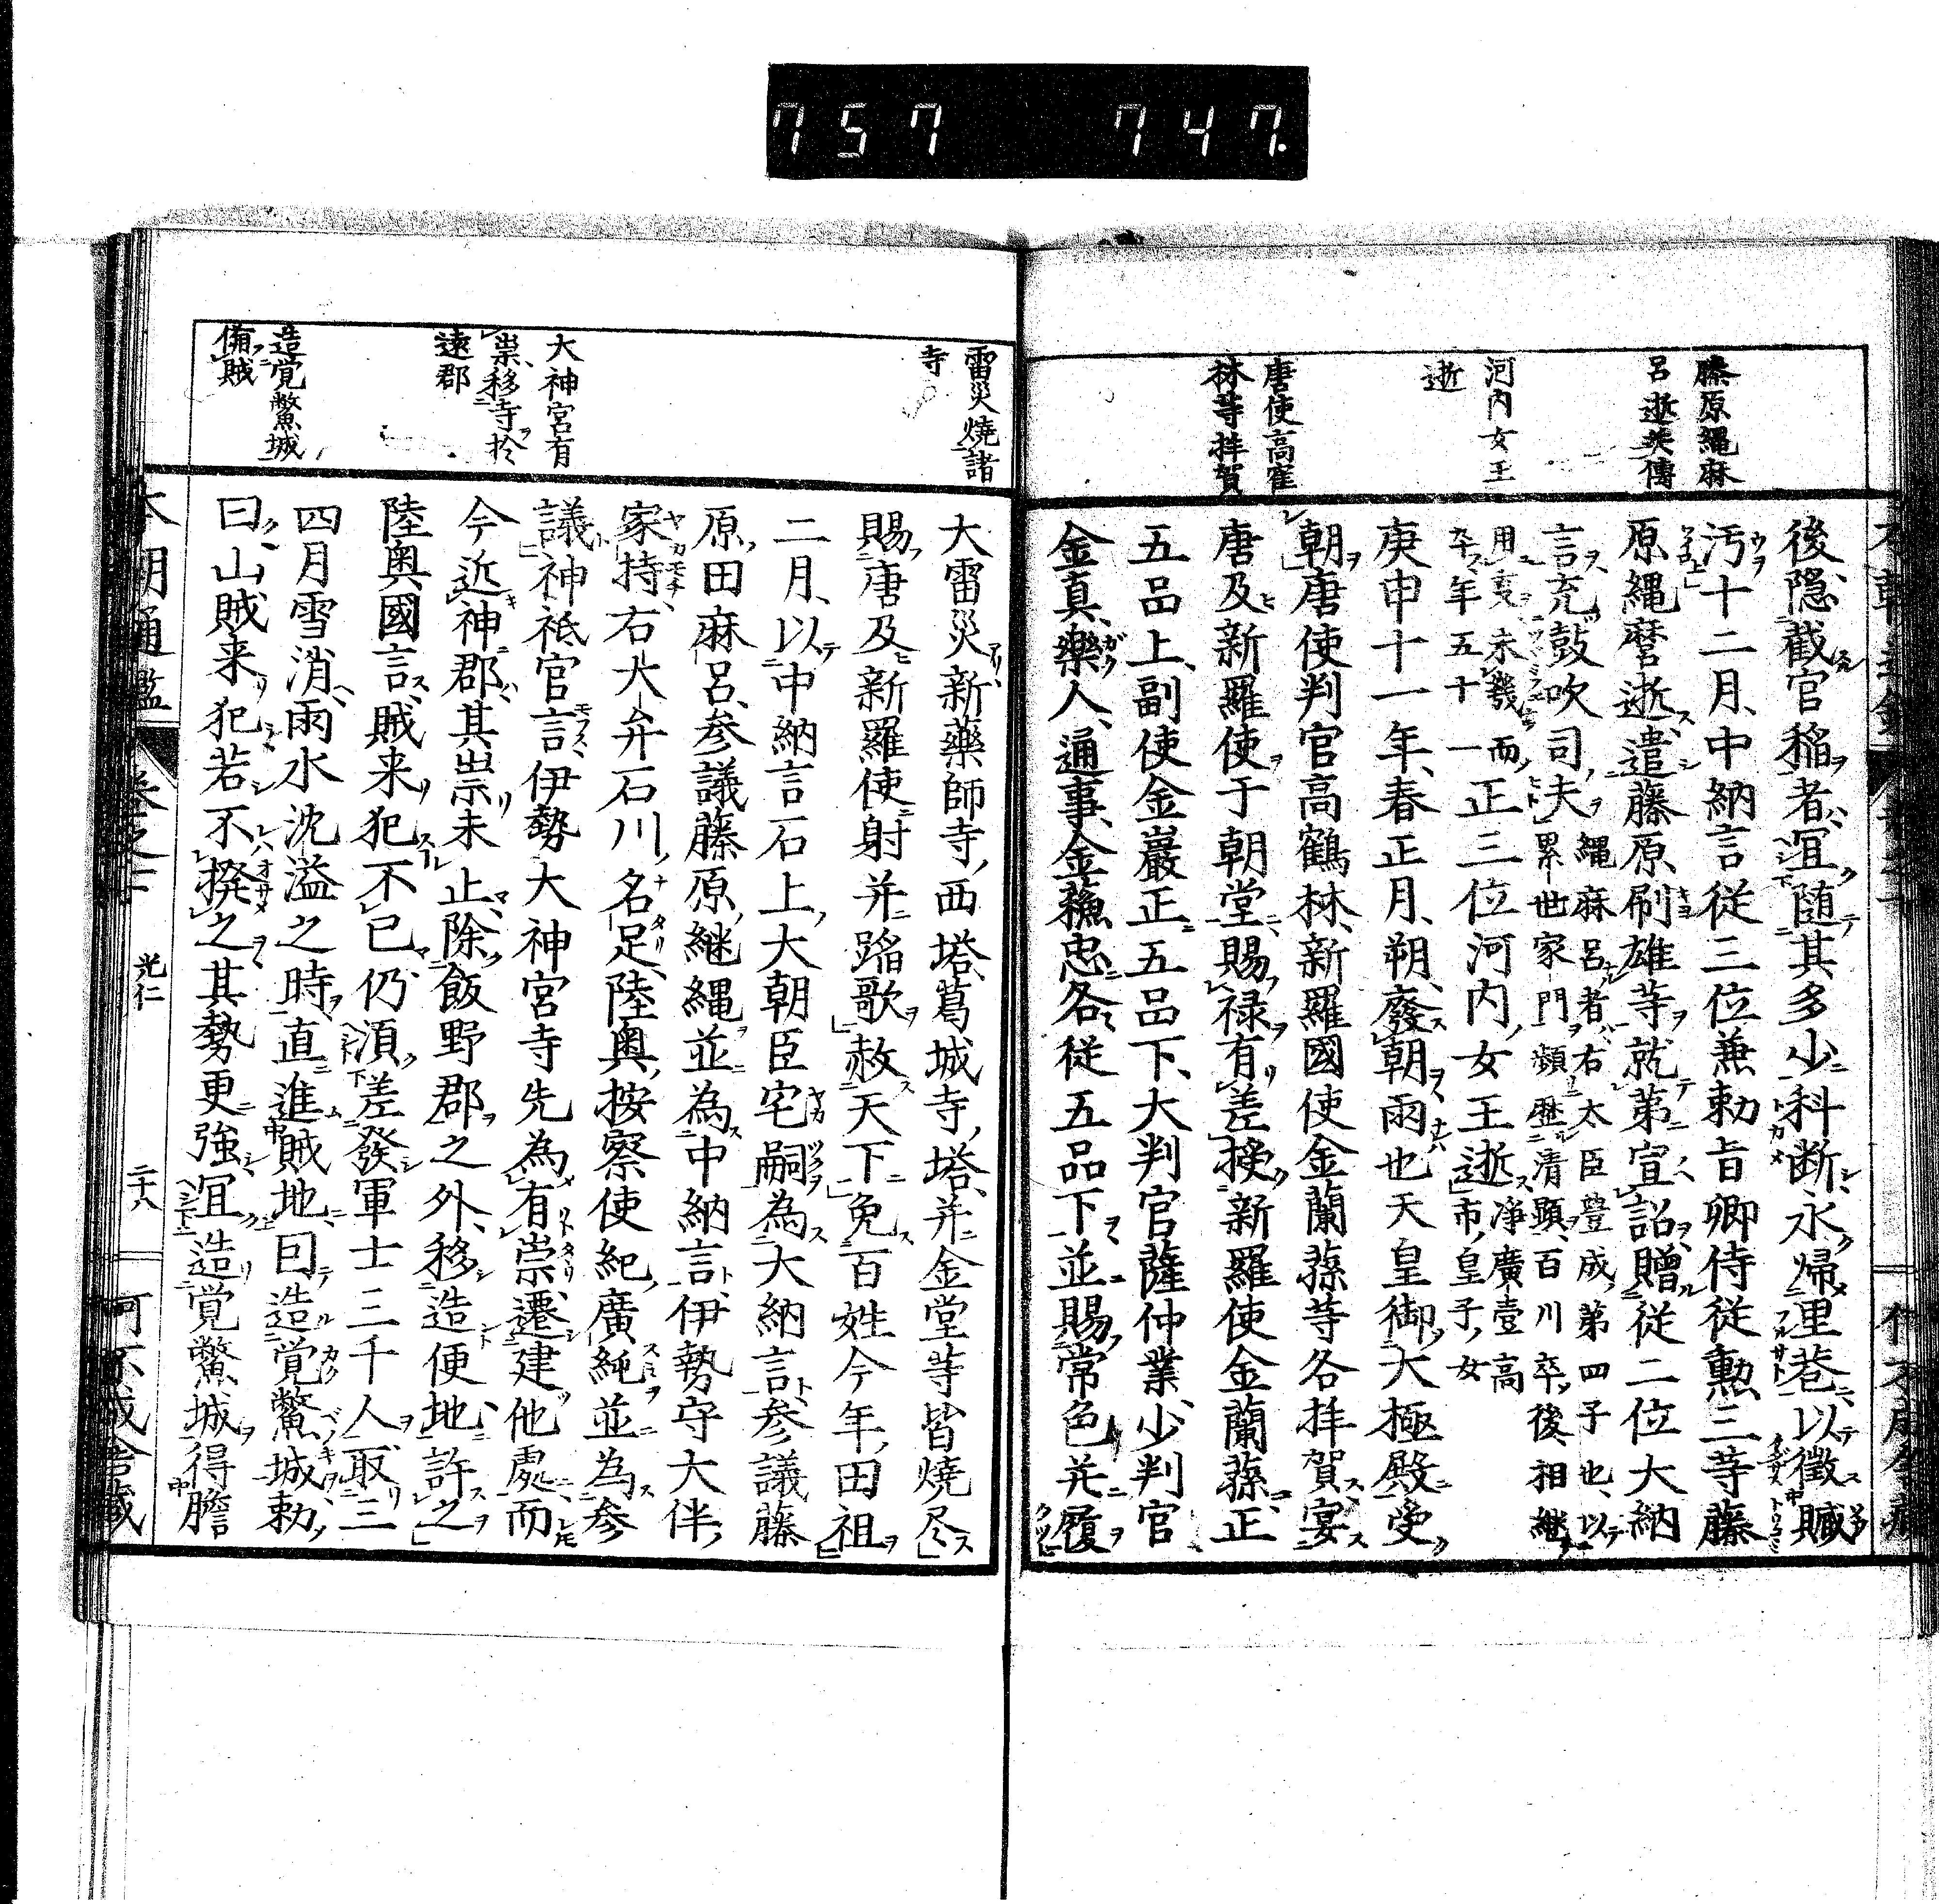 757 747.
藤原縄麻
呂逝英傳
河内女王
逝
唐使高寉
林等拝賀
後隠截官稲者、宜随其多少科断、永帰里巷、以徴贓
汚十二月、中納言従三位兼勅旨卿侍従勲三等藤
原縄麿逝、遣藤原刷雄等就第宣詔贈従二位大納
言、充鼓吹司夫
縄麻呂者、右大臣豊成、第四子也、以
累世家門頻歴清顕、百川卒、後、相継
用事、未幾而
卒、年五十一
正三位河内女王逝
浄廣壹高
市皇子、女
庚申十一年、春正月、朔、廢朝雨也天皇御大極殿受
朝唐使判官高鶴林、新羅國使金蘭蓀等各拝賀宴
唐及新羅使于朝堂、賜禄有差授新羅使金蘭蓀、正
五品上、副使金巖正五品下、大判官薩仲業、少判官
金真、樂人、通事、金蘓忠各従五品下並賜常色并履
雷災焼諸
寺
大神宮有
祟、移寺於
遠郡
造覚鱉城
備賊
大雷災新藥師寺、西塔、葛城寺、塔、并金堂等皆焼尽
賜唐及新羅使射并蹈歌赦天下免百姓今年田祖
二月、以中納言石上、大朝臣宅嗣為大納言、参議藤
原田麻呂、参議藤原継縄並為中納言、伊勢守大伴
家持右大弁石川名足、陸奥按察使紀廣純並為参
議神祇官言伊勢大神宮寺先為有祟遷建他處而
今近神郡其祟未止除飯野郡之外、移造便地許之
陸奥國言、賊来犯不已仍湏差發軍士三千人取三
四月雪消雨水沈溢之時直進賊地、囙造覚鱉城勅
曰、山賊来犯若不撥之其勢更強、宜造覚鱉城得膽
本朝通鑑
卷之十
光仁
二十八